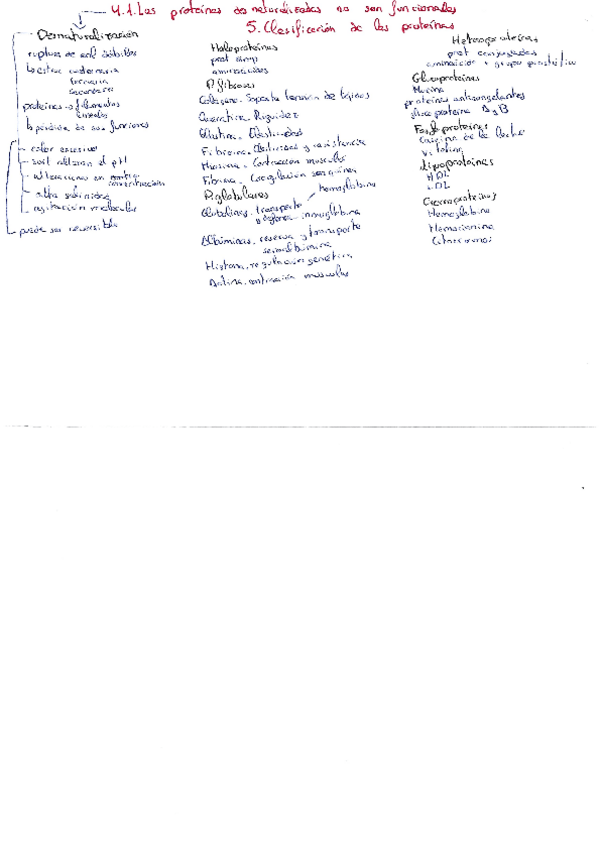 4.1. Las proteínas desnaturalizadas no son funcionales
Desnaturalización
ruptura de enl débiles
↳ estruc cuaternaria
terciaria
secundaria
proteínas → filamentos
lineales
↳ pérdida de sus funciones
- calor excesivo
- sust alteran el pH
- alteraciones en
concentración
- alta salinidad
- agitación molecular
puede ser reversible
5. Clasificación de las proteínas
Holoproteínas
prot simp
aminoácidos
P. fibrosas
Colágeno. Soporte tensión de tejidos
Queratina. Rigidez
Elastina. Elasticidad
Fibroína. Elasticidad y resistencia
Miosina. Contracción muscular
Fibrina. Coagulación sanguínea
P. globulares
hemoglobina
Globulinas. transporte
y defensa inmunoglobulina
Albúminas. reserva y transporte
seroalbúmina
Histona. regulación genética
Actina. contracción muscular
Heteroproteínas
prot conjugadas
aminoácido + grupo prostético
Glucoproteínas
Mucina
proteínas anticongelantes
glucoproteína A y B
Fosfoproteínas
Caseína de la leche
Vitelina
Lipoproteínas
HDL
LDL
Cromoproteínas
Hemoglobina
Hemocianina
Citocromos